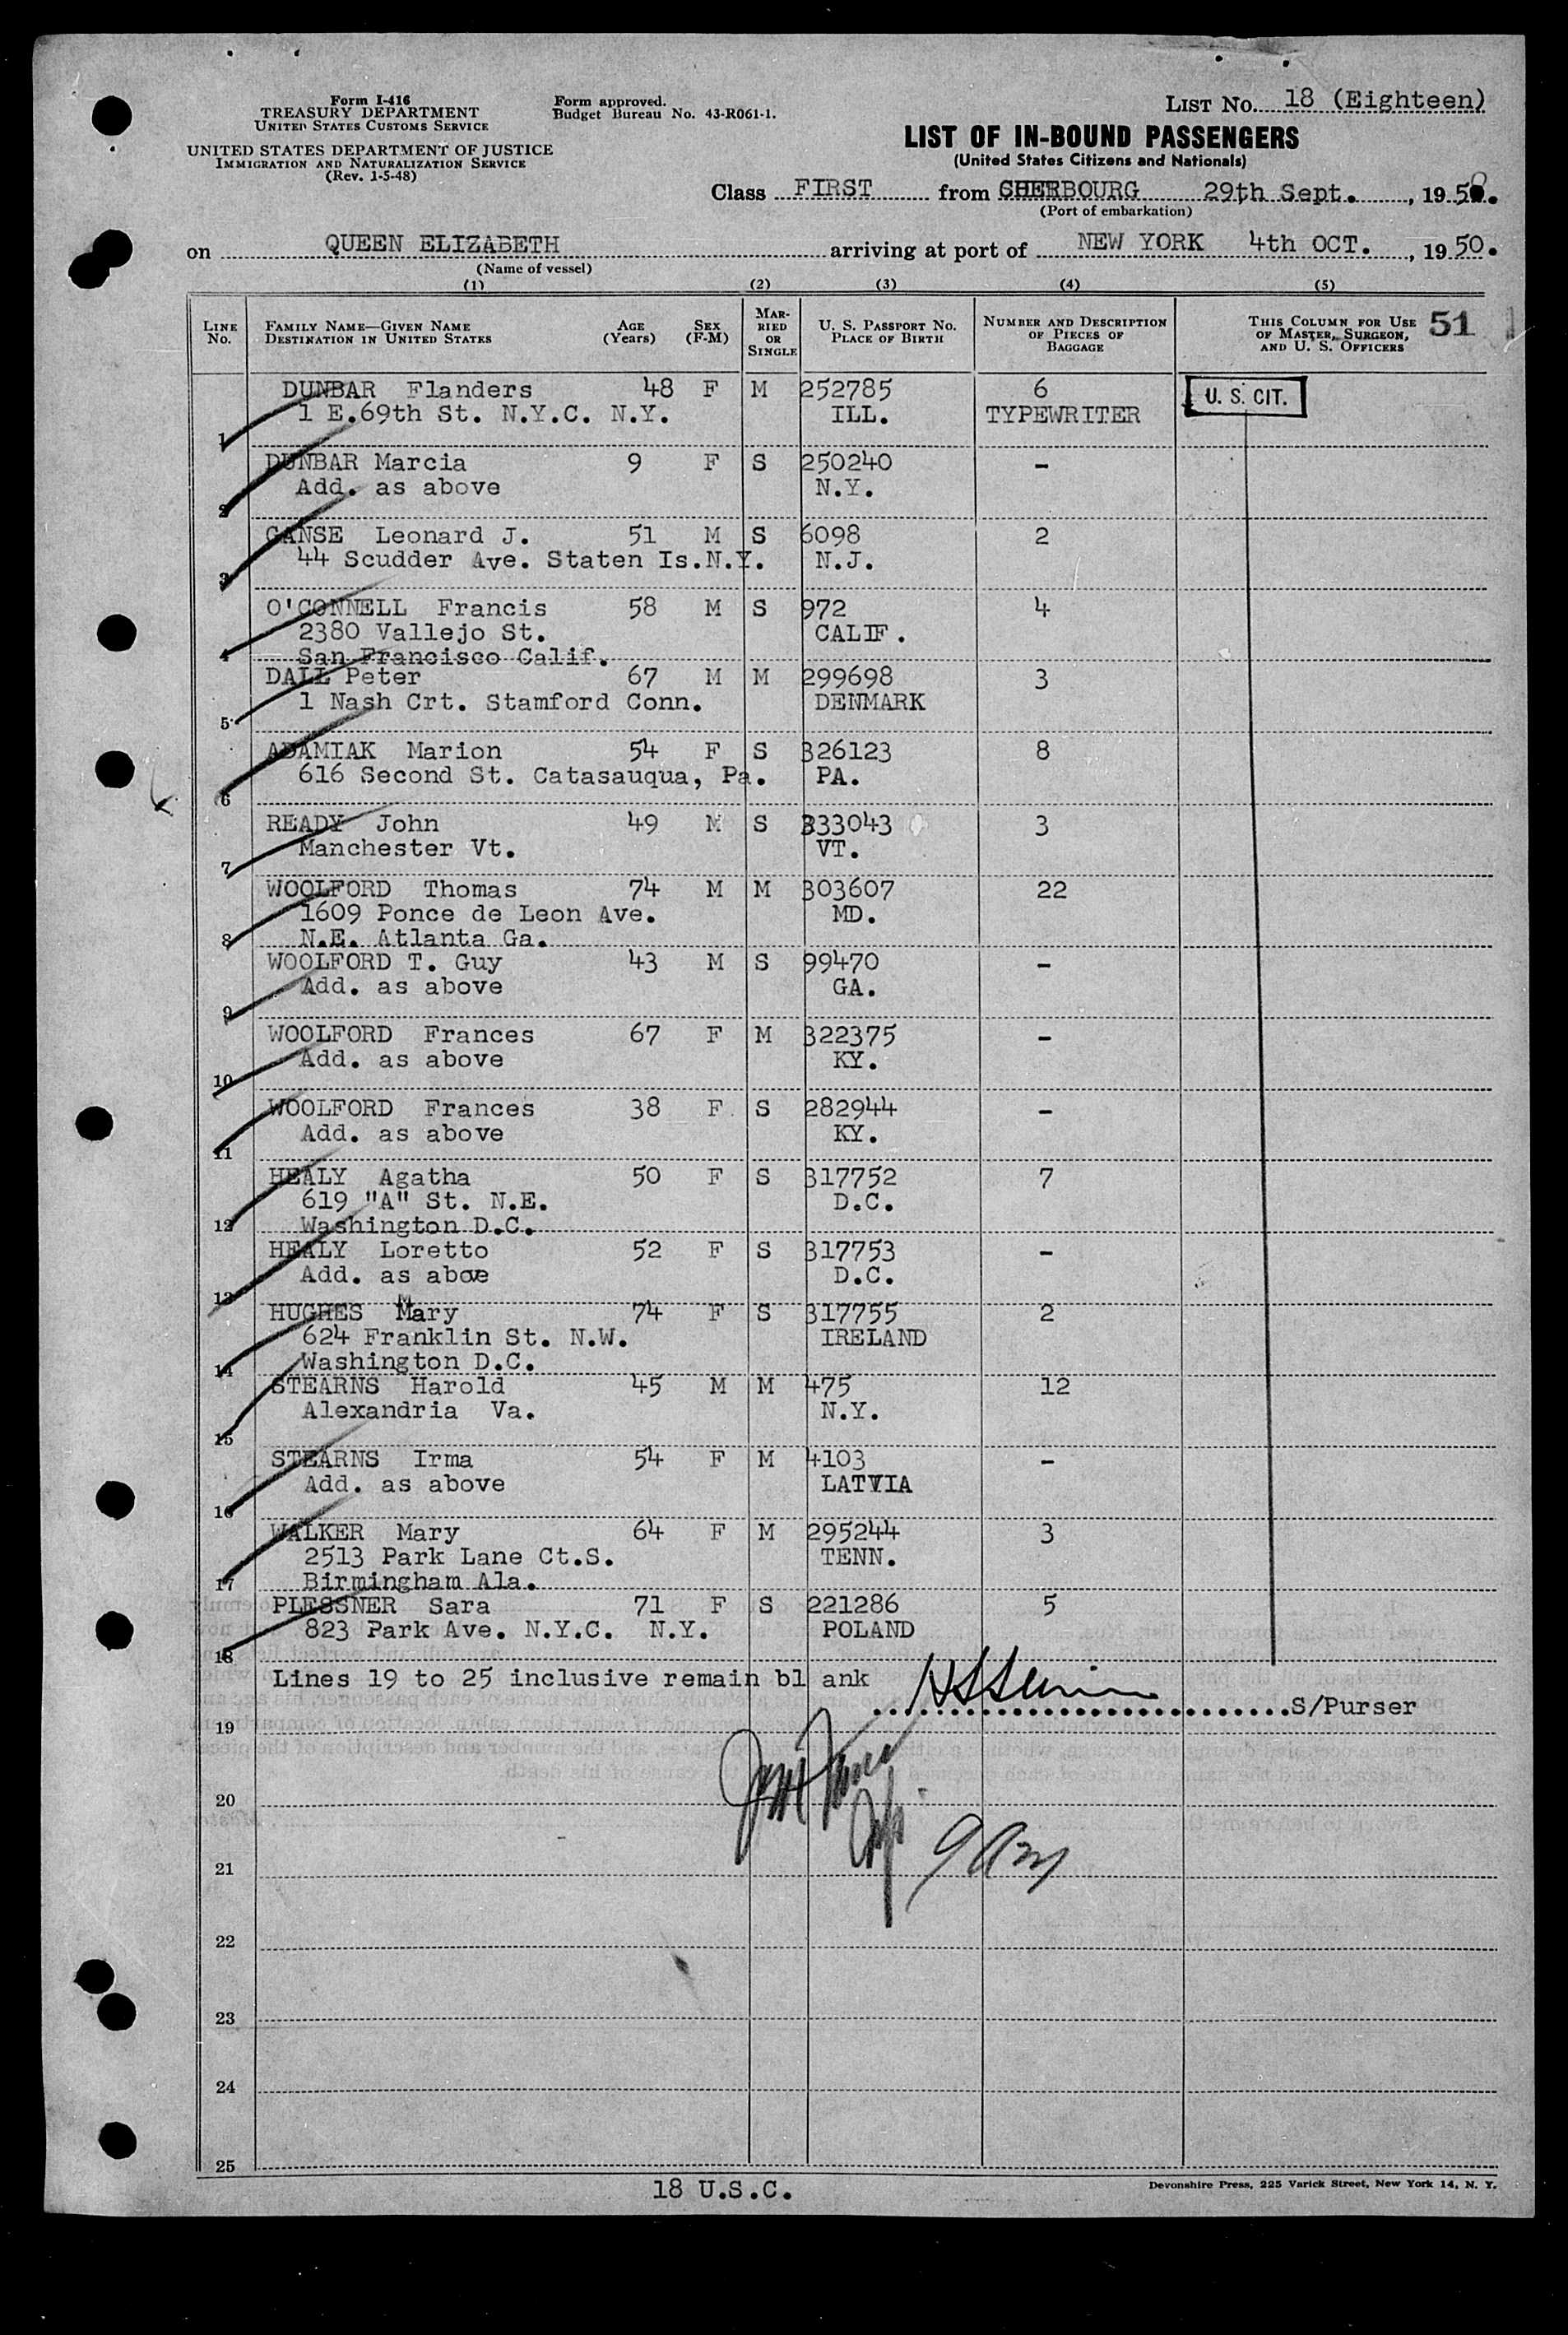 Form I-416
TREASURY DEPARTMENT
UNITED STATES CUSTOMS SERVICE
UNITED STATES DEPARTMENT OF JUSTICE
IMMIGRATION AND NATURALIZATION SERVICE
(Rev. 1-5-48)
Form approved.
Budget Bureau No. 43-R061-1.
LIST No. 18 (Eighteen)
LIST OF IN-BOUND PASSENGERS
(United States Citizens and Nationals)
Class FIRST from CHERBOURG 29th Sept., 1950.
(Port of embarkation)
on QUEEN ELIZABETH arriving at port of NEW YORK 4th OCT., 1950.
(Name of vessel)
(1) (2) (3) (4) (5)
LINE No. FAMILY NAME—GIVEN NAME DESTINATION IN UNITED STATES AGE (Years) SEX (F-M) MARRIED OR SINGLE U. S. PASSPORT No. PLACE OF BIRTH NUMBER AND DESCRIPTION OF PIECES OF BAGGAGE THIS COLUMN FOR USE OF MASTER, SURGEON, AND U. S. OFFICERS 51
DUNBAR Flanders 48 F M 252785 6 U. S. CIT.
1 1 E.69th St. N.Y.C. N.Y. ILL. TYPEWRITER
DUNBAR Marcia 9 F S 250240 -
2 Add. as above N.Y.
GANSE Leonard J. 51 M S 6098 2
3 44 Scudder Ave. Staten Is.N.Y. N.J.
O'CONNELL Francis 58 M S 972 4
2380 Vallejo St. CALIF.
4 San Francisco Calif.
DALL Peter 67 M M 299698 3
5 1 Nash Crt. Stamford Conn. DENMARK
ADAMIAK Marion 54 F S 326123 8
6 616 Second St. Catasauqua, Pa. PA.
READY John 49 M S 333043 3
7 Manchester Vt. VT.
WOOLFORD Thomas 74 M M 303607 22
1609 Ponce de Leon Ave. MD.
8 N.E. Atlanta Ga.
WOOLFORD T. Guy 43 M S 99470 -
9 Add. as above GA.
WOOLFORD Frances 67 F M 322375 -
10 Add. as above KY.
WOOLFORD Frances 38 F S 282944 -
11 Add. as above KY.
HEALY Agatha 50 F S 317752 7
619 "A" St. N.E. D.C.
12 Washington D.C.
HEALY Loretto 52 F S 317753 -
13 Add. as above D.C.
HUGHES Mary 74 F S 317755 2
624 Franklin St. N.W. IRELAND
14 Washington D.C.
STEARNS Harold 45 M M 475 12
15 Alexandria Va. N.Y.
STEARNS Irma 54 F M 4103 -
16 Add. as above LATVIA
WALKER Mary 64 F M 295244 3
2513 Park Lane Ct.S. TENN.
17 Birmingham Ala.
PLESSNER Sara 71 F S 221286 5
18 823 Park Ave. N.Y.C. N.Y. POLAND
Lines 19 to 25 inclusive remain bl ank
S/Purser
19
20
21
22
23
24
25
18 U.S.C.
Devonshire Press, 225 Varick Street, New York 14, N. Y.